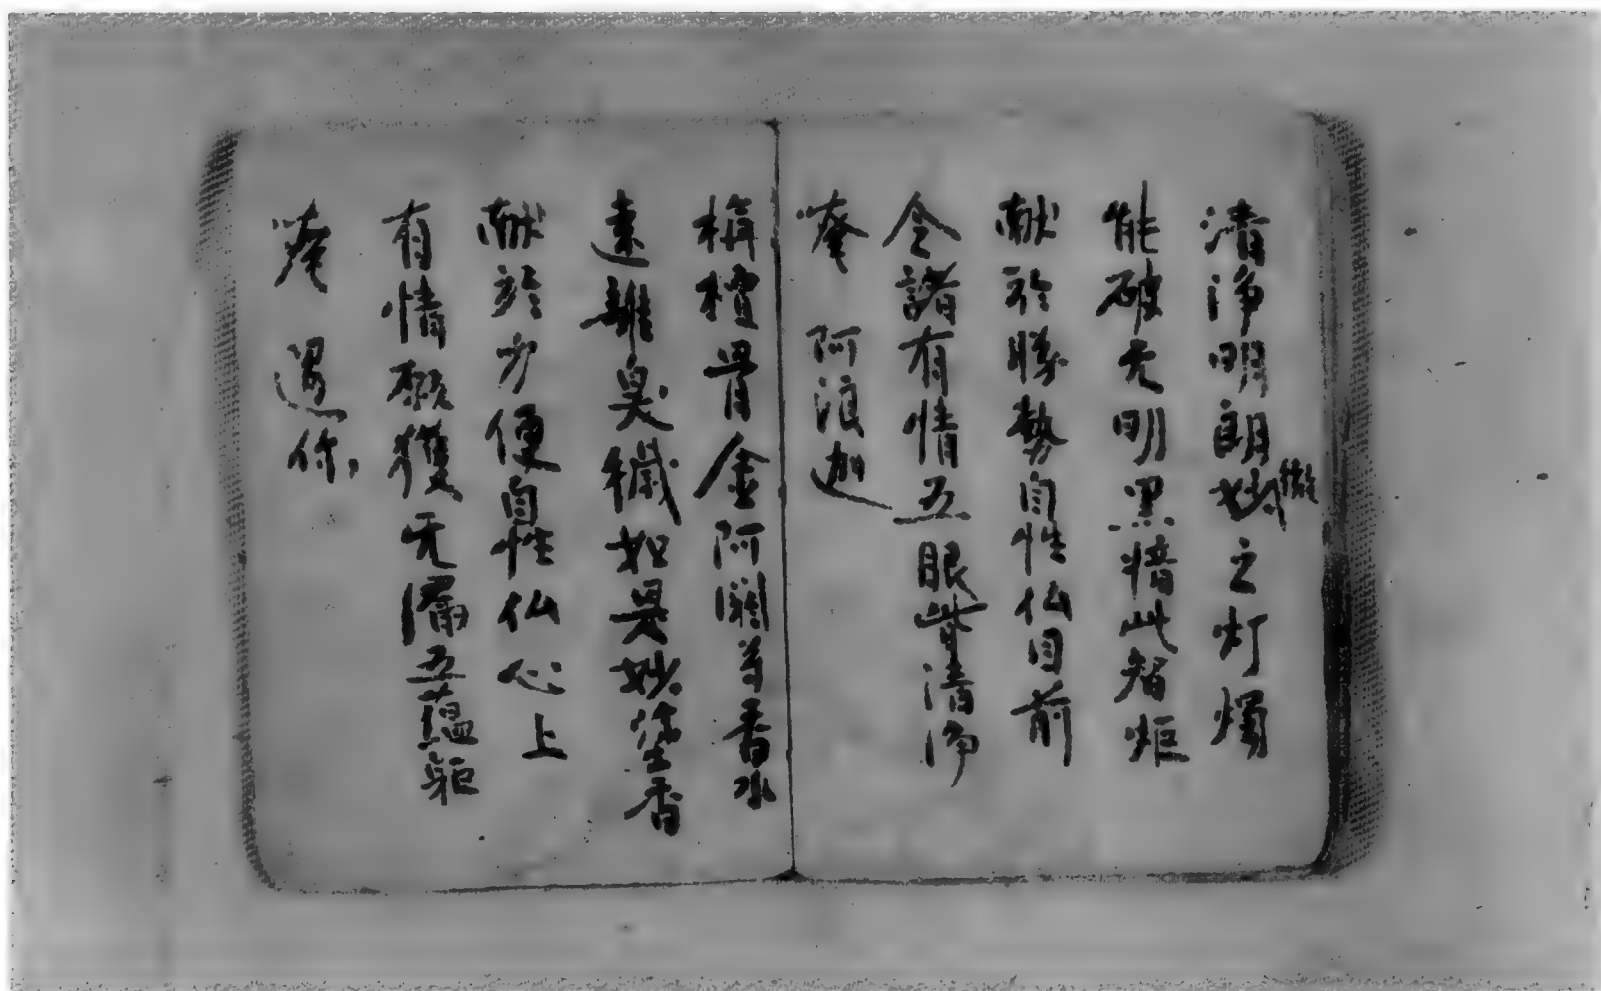 清净明朗妙微之灯燭
能破无明黑暗此智炬
献於勝勢自性仏目前
令諸有情五眼皆清净
唵 阿浪迦
栴檀骨金阿閦等香水
遠離臭穢如是妙塗香
献於方便自性仏心上
有情願獲无漏五蘊軀
唵 你